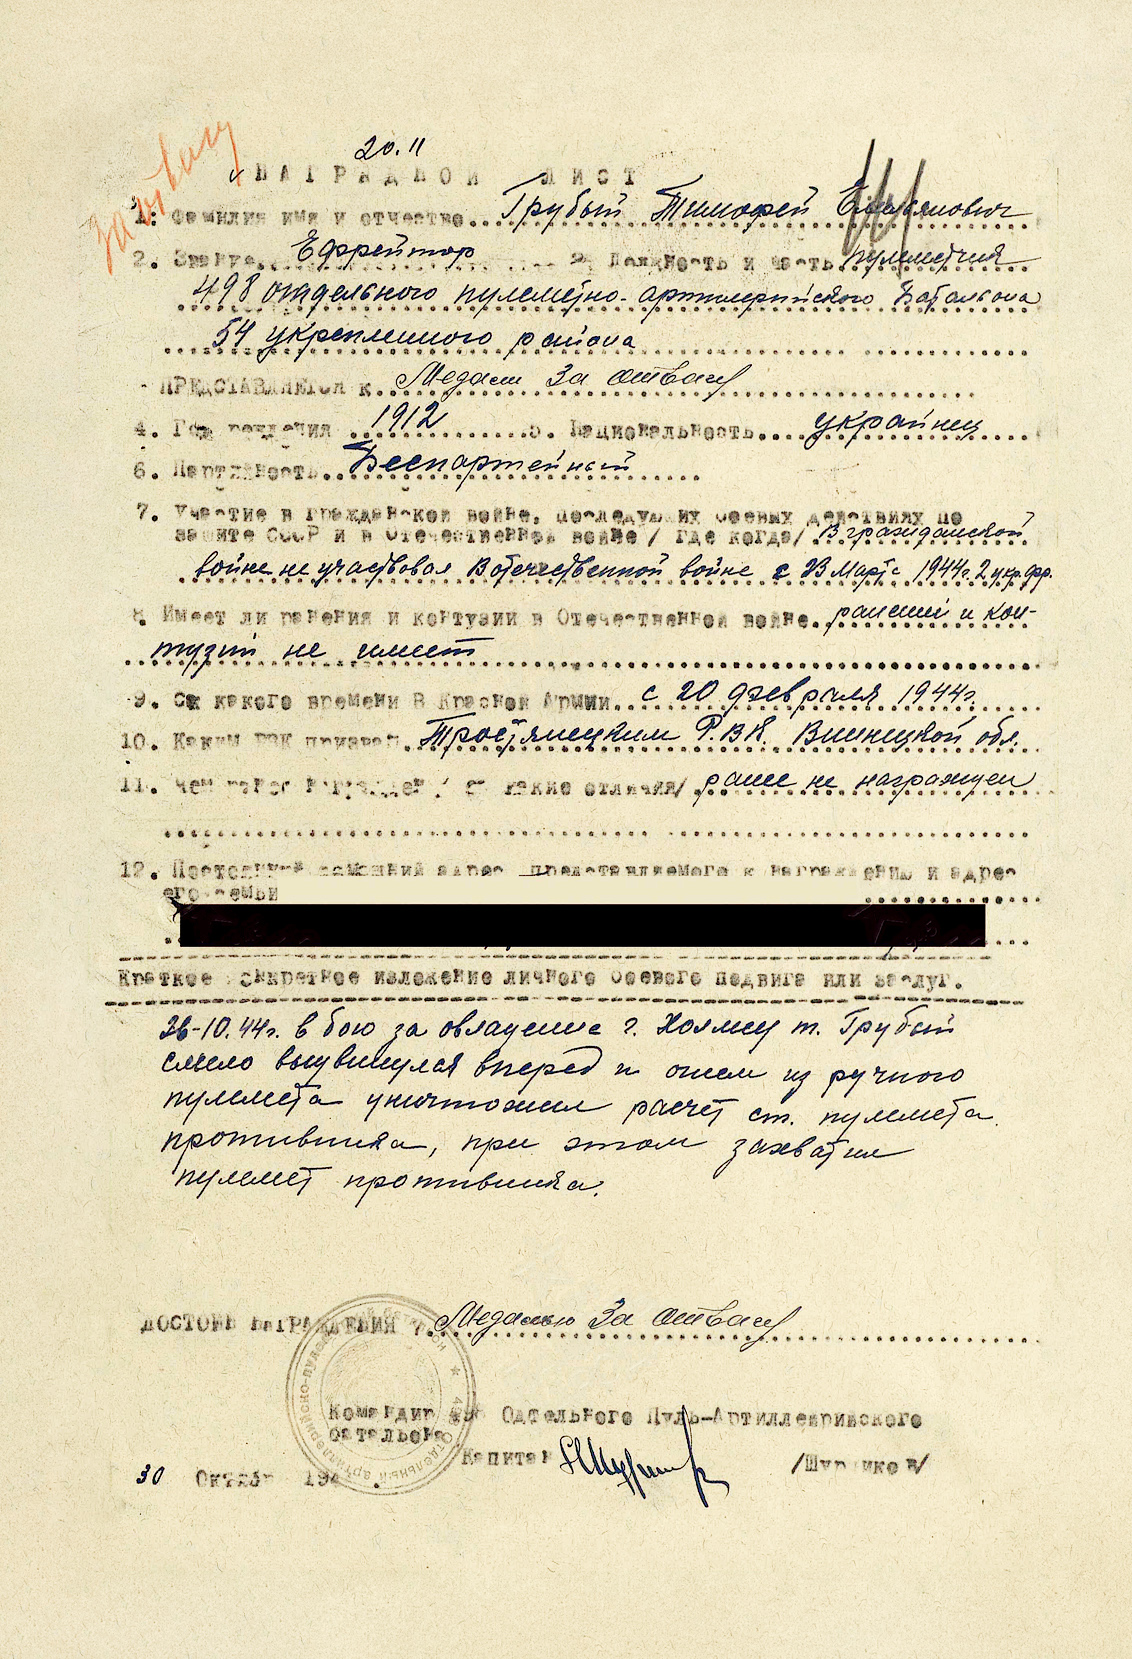 За отвагу
20.11
НАГРАДНОЙ ЛИСТ
1. Фамилия имя и отчество..Грубый Тимофей
2. Звание..Ефрейтор 3. Должность и часть пулеметчик
498 отдельного пулеметно-артиллерийского батальона
54 укрепленного района
ПРЕДСТАВЛЯЕТСЯ к..Медали За отвагу
4. Год рождения 1912 5. Национальность....украинец
6. Партийность..Беспартейный
7. Участие в гражданской войне, последующих боевых действиях по
защите СССР и в Отечественной войне / где когда/.В гражданской
войне не участвовал В отечественной войне с 23 марта 1944г. 2 укр. фр.
8. Имеет ли ранения и контузии в Отечественной войне..ранений и кон-
тузий не имеет
9. С какого времени в Красной Армии...с 20 февраля 1944г.
10. Каким РВК призван..Тростянецким Р.В.К. Винницкой обл.
11. Чем ранее награжден / за какие отличия/.ранее не награжден
12. Постоянный домашний адрес представляемого к награждению и адрес
его семьи
Краткое конкретное изложение личного боевого подвига или заслуг.
26-10.44г. в бою за овладение г. Холмец т. Грубый
смело выдвинулся вперед и огнем из ручного
пулемета уничтожил расчет ст. пулемета
противника, при этом захватил
пулемет противника.
ДОСТОИН НАГРАЖДЕНИЯ Медалью За отвагу
Командир 498 Одтельного Пуль-Артиллеринского
батальона
Капитан /Шурчиков/
30 Октября 194